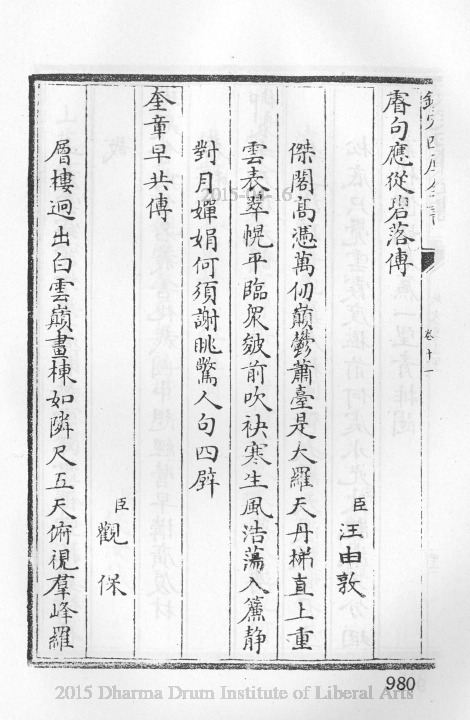 欽定四庫全書
卷十一
睿句應從碧落傳
臣 汪由敦
傑閣高憑萬仞巔鬱蕭臺是大羅天丹梯直上重
雲表翠幌平臨衆皴前吹袂寒生風浩蕩入簾静
對月嬋娟何須謝眺驚人句四壁
奎章早共傳
臣 觀保
層樓迥出白雲巔畫棟如隣尺五天俯視羣峰羅
980
2015-04-16
2015 Dharma Drum Institute of Liberal Arts